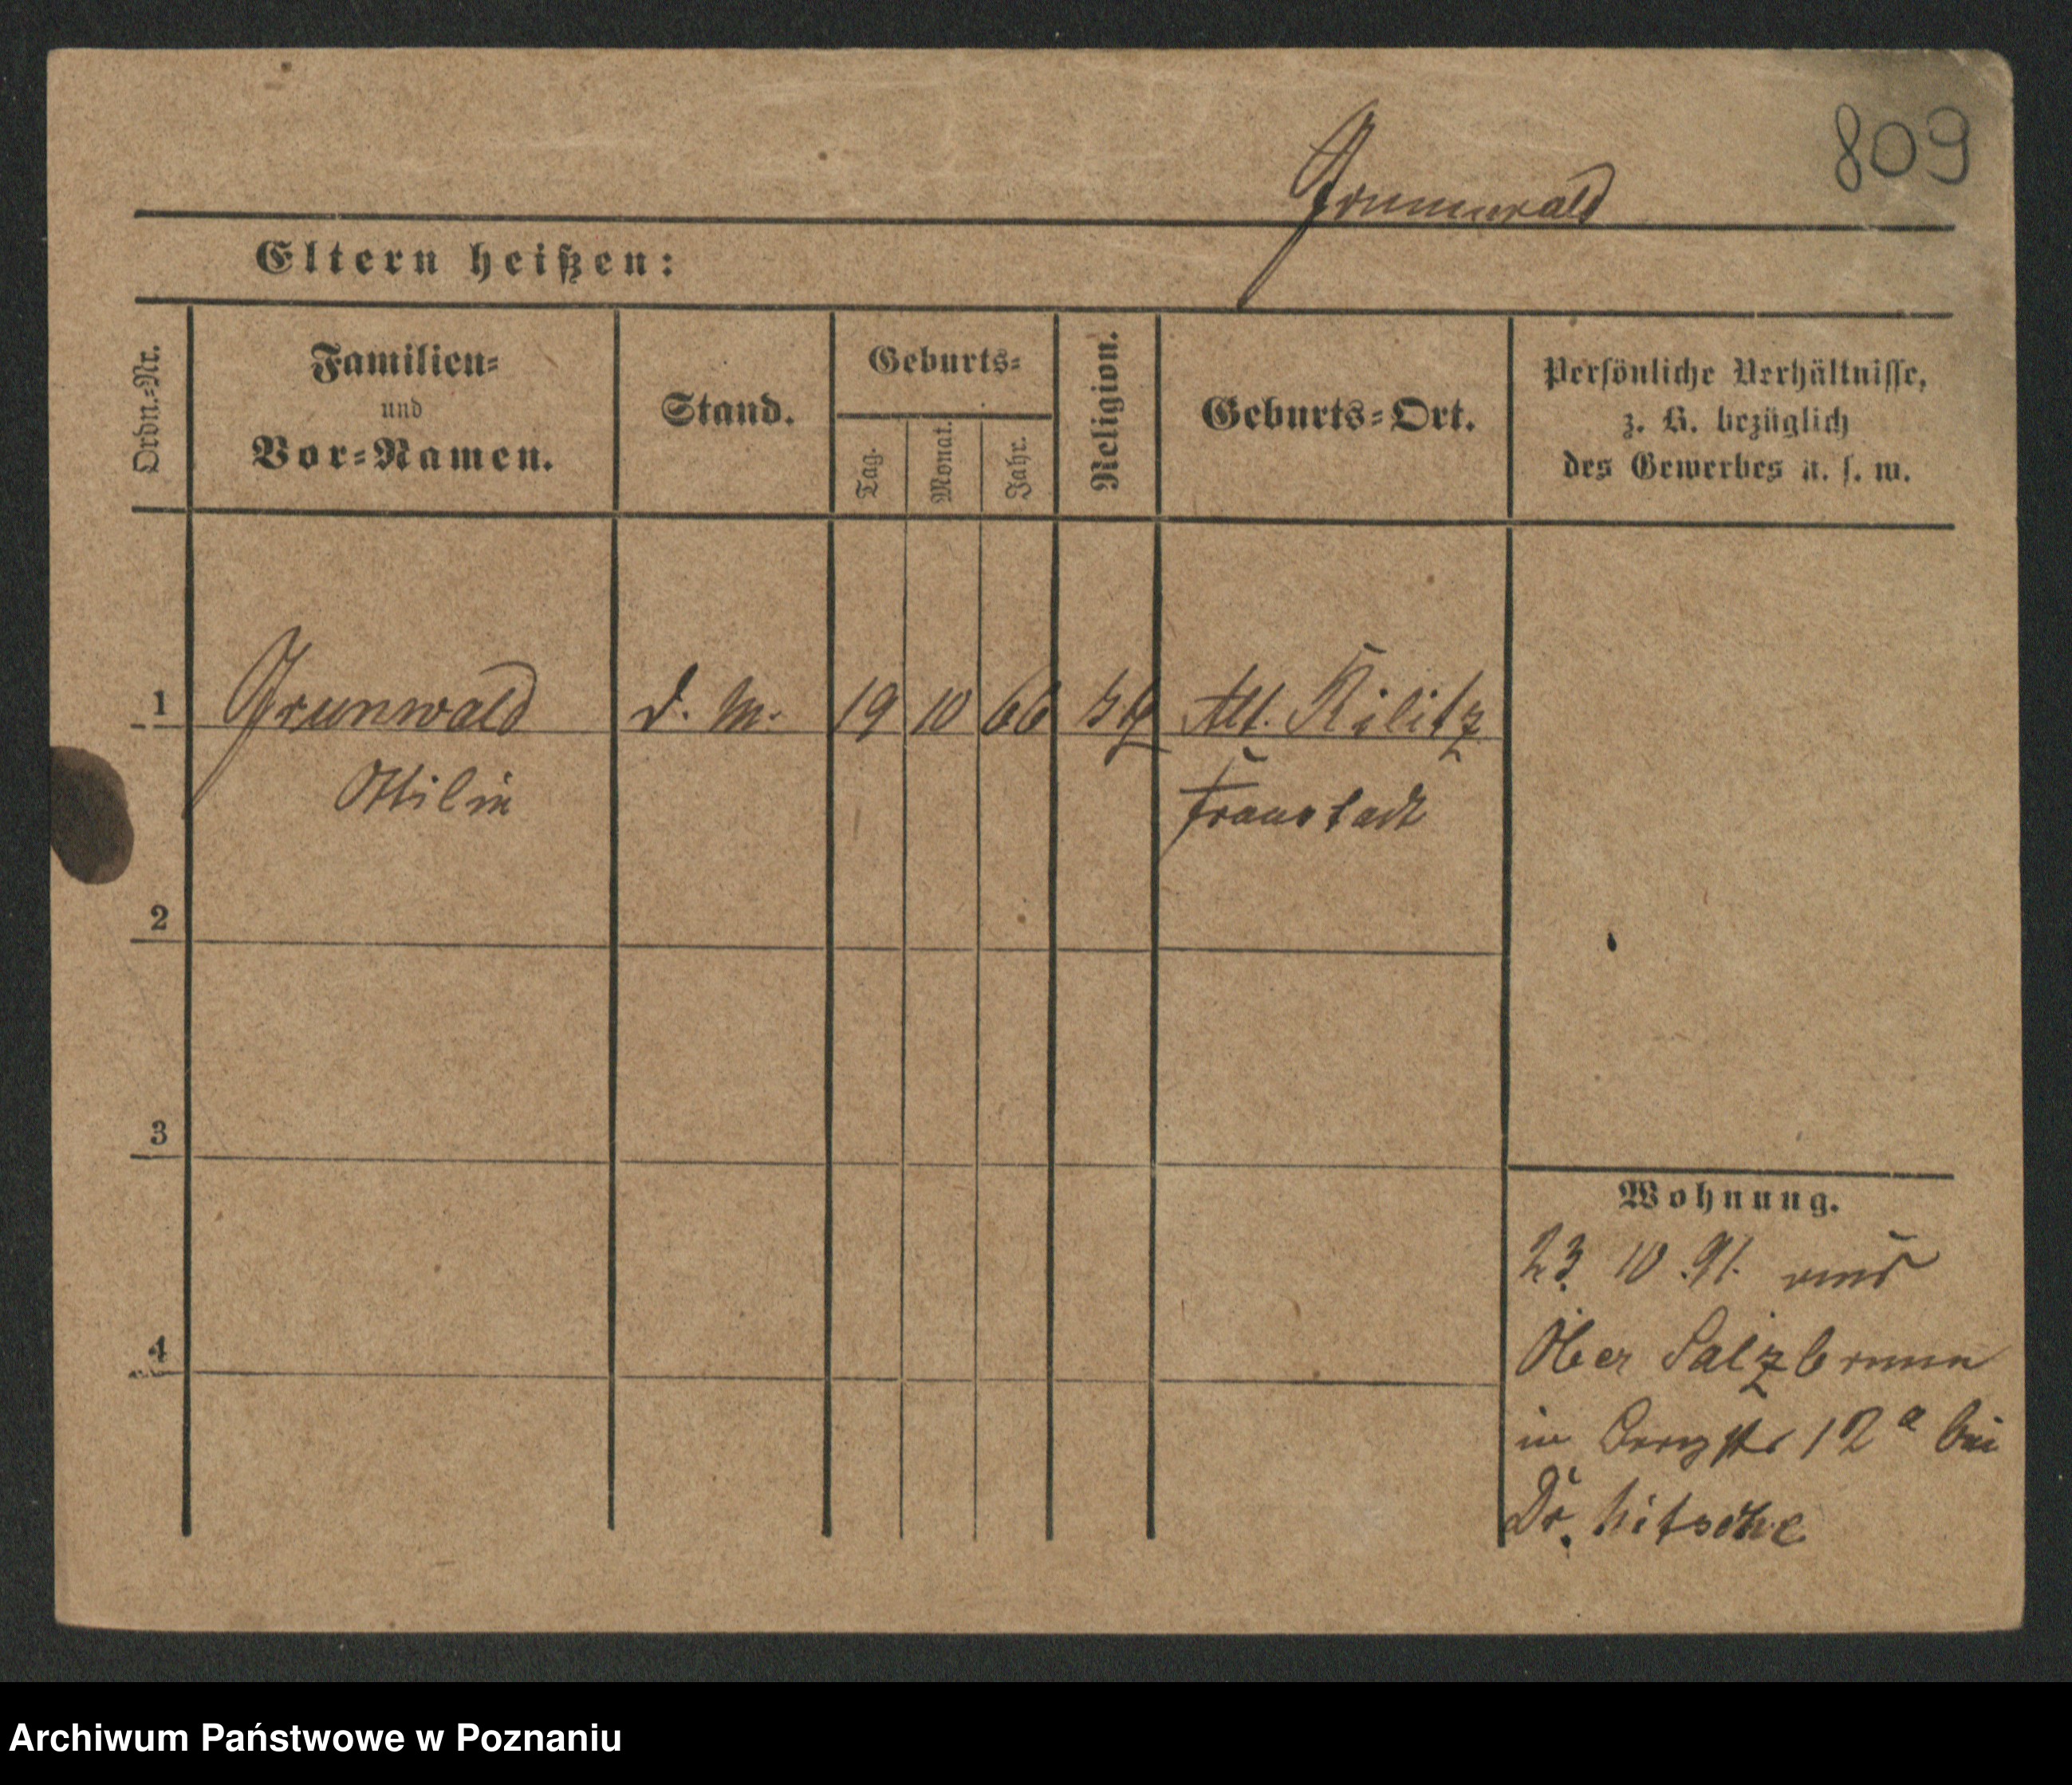 809
Grunwald
Eltern heißen:
Ordn.-Nr.
Familien-
und
Vor-Namen.
Stand.
Geburts-
Tag.
Monat.
Jahr.
Religion.
Geburts-Ort.
Persönliche Verhältnisse,
z. B. bezüglich
des Gewerbes u. s. w.
1 Grunwald d. M. 19 10 66 Alt.
Ottilie Fraustadt
2
3
4
Wohnung.
23. 10. 91.
Ober Salzbrunn
in Bergstr 12 a bei
Dr. Nitsche
Archiwum Państwowe w Poznaniu